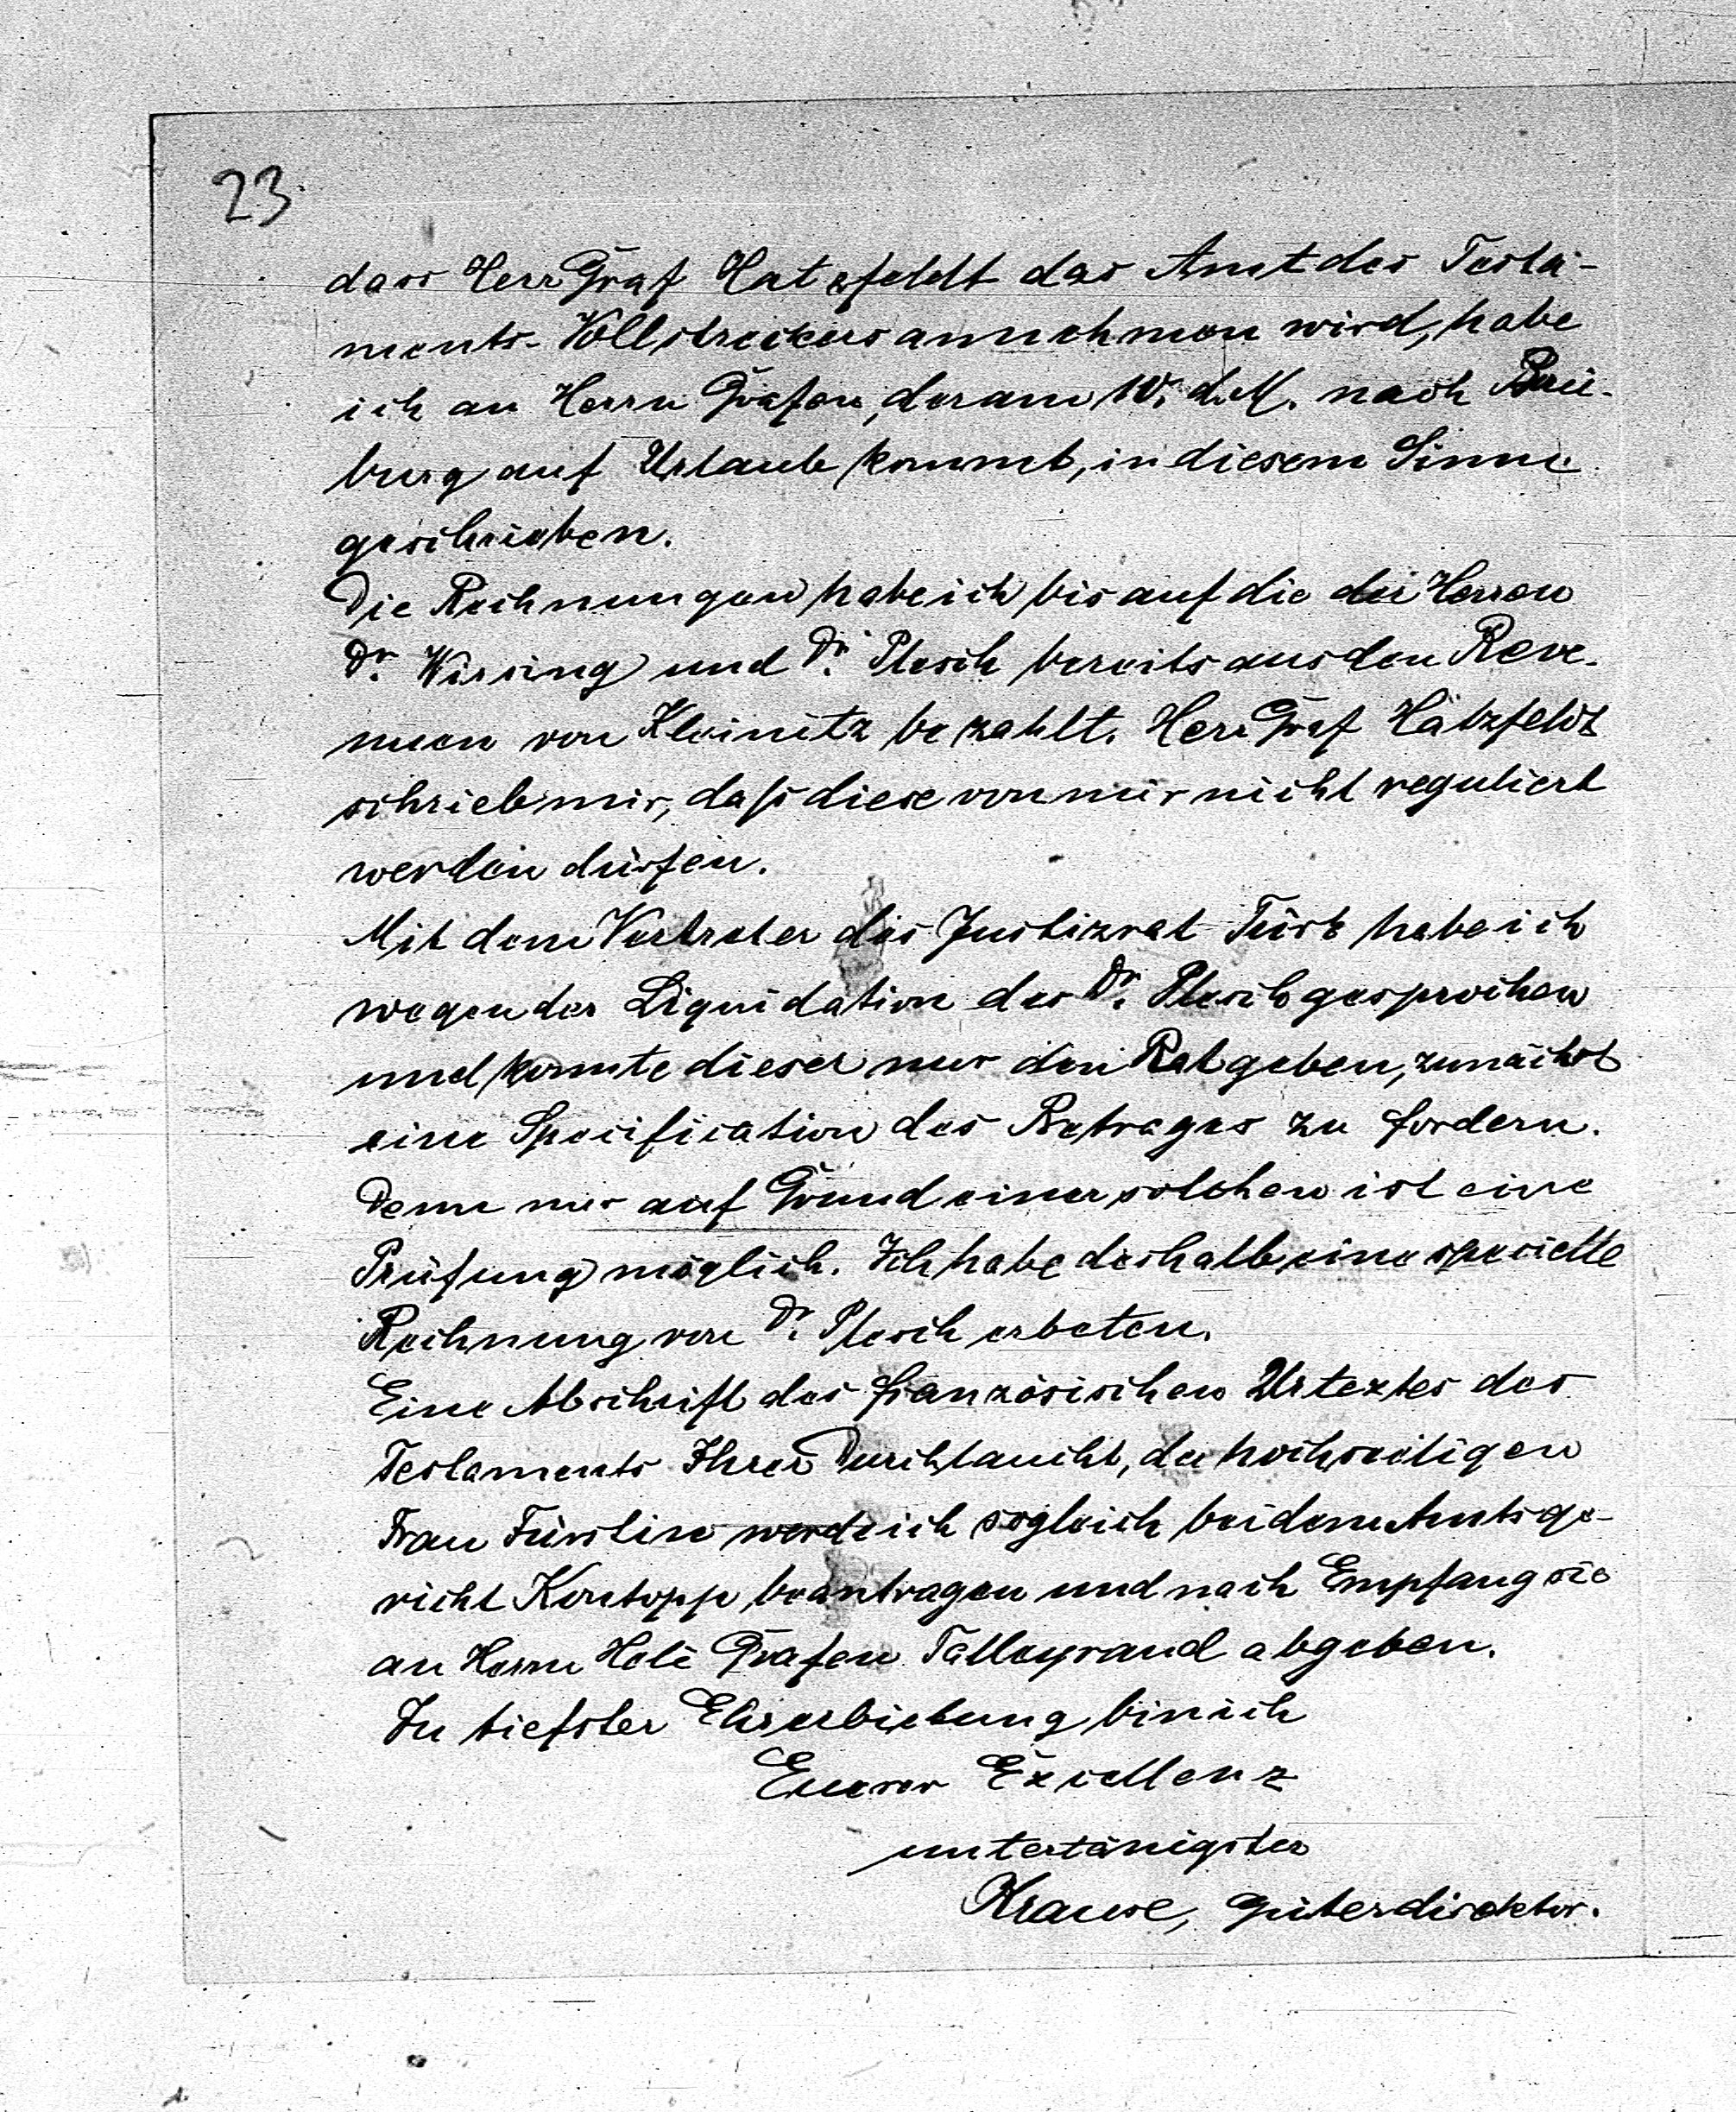 23
dass Herr Graf Hatzfeldt das Amt des Testa-
ments-Vollstreckers annehmen wird, habe
ich an Herrn Grafen, der am 10. d. M. nach
burg auf Urlaub kommt, in diesem Sinne
geschrieben.
Die Rechnungen habe ich bis auf die der Herren
Dr. Wirsing und Dr. Plesch bereits aus den Reve-
nuen von Kleinitz bezahlt. Herr Graf Hatzfeldt
schrieb mir, daß diese von mir nicht reguliert
werden dürfen.
Mit dem Vertreter des Justizrat Türk habe ich
wegen der Liquidation des Dr. Plesch gesprochen
und konnte dieser nur den Rat geben, zunächst
eine Specification des Betrages zu fordern.
Denn nur auf Grund einer solchen ist eine
Prüfung möglich. Ich habe deshalb eine specielle
Rechnung von Dr. Plesch erbeten.
Eine Abschrift des französischen Urtextes des
Testaments Ihrer Durchlaucht, der hochseeligen
Frau Fürstin werde ich sogleich bei dem Amtsge-
richt Kontopp beantragen und nach Empfang sie
an Herrn Helie Grafen Talleyrand abgeben.
In tiefster Ehrerbietung bin ich
Euerer Excellenz
untertänigster
Krause, Güterdirektor.